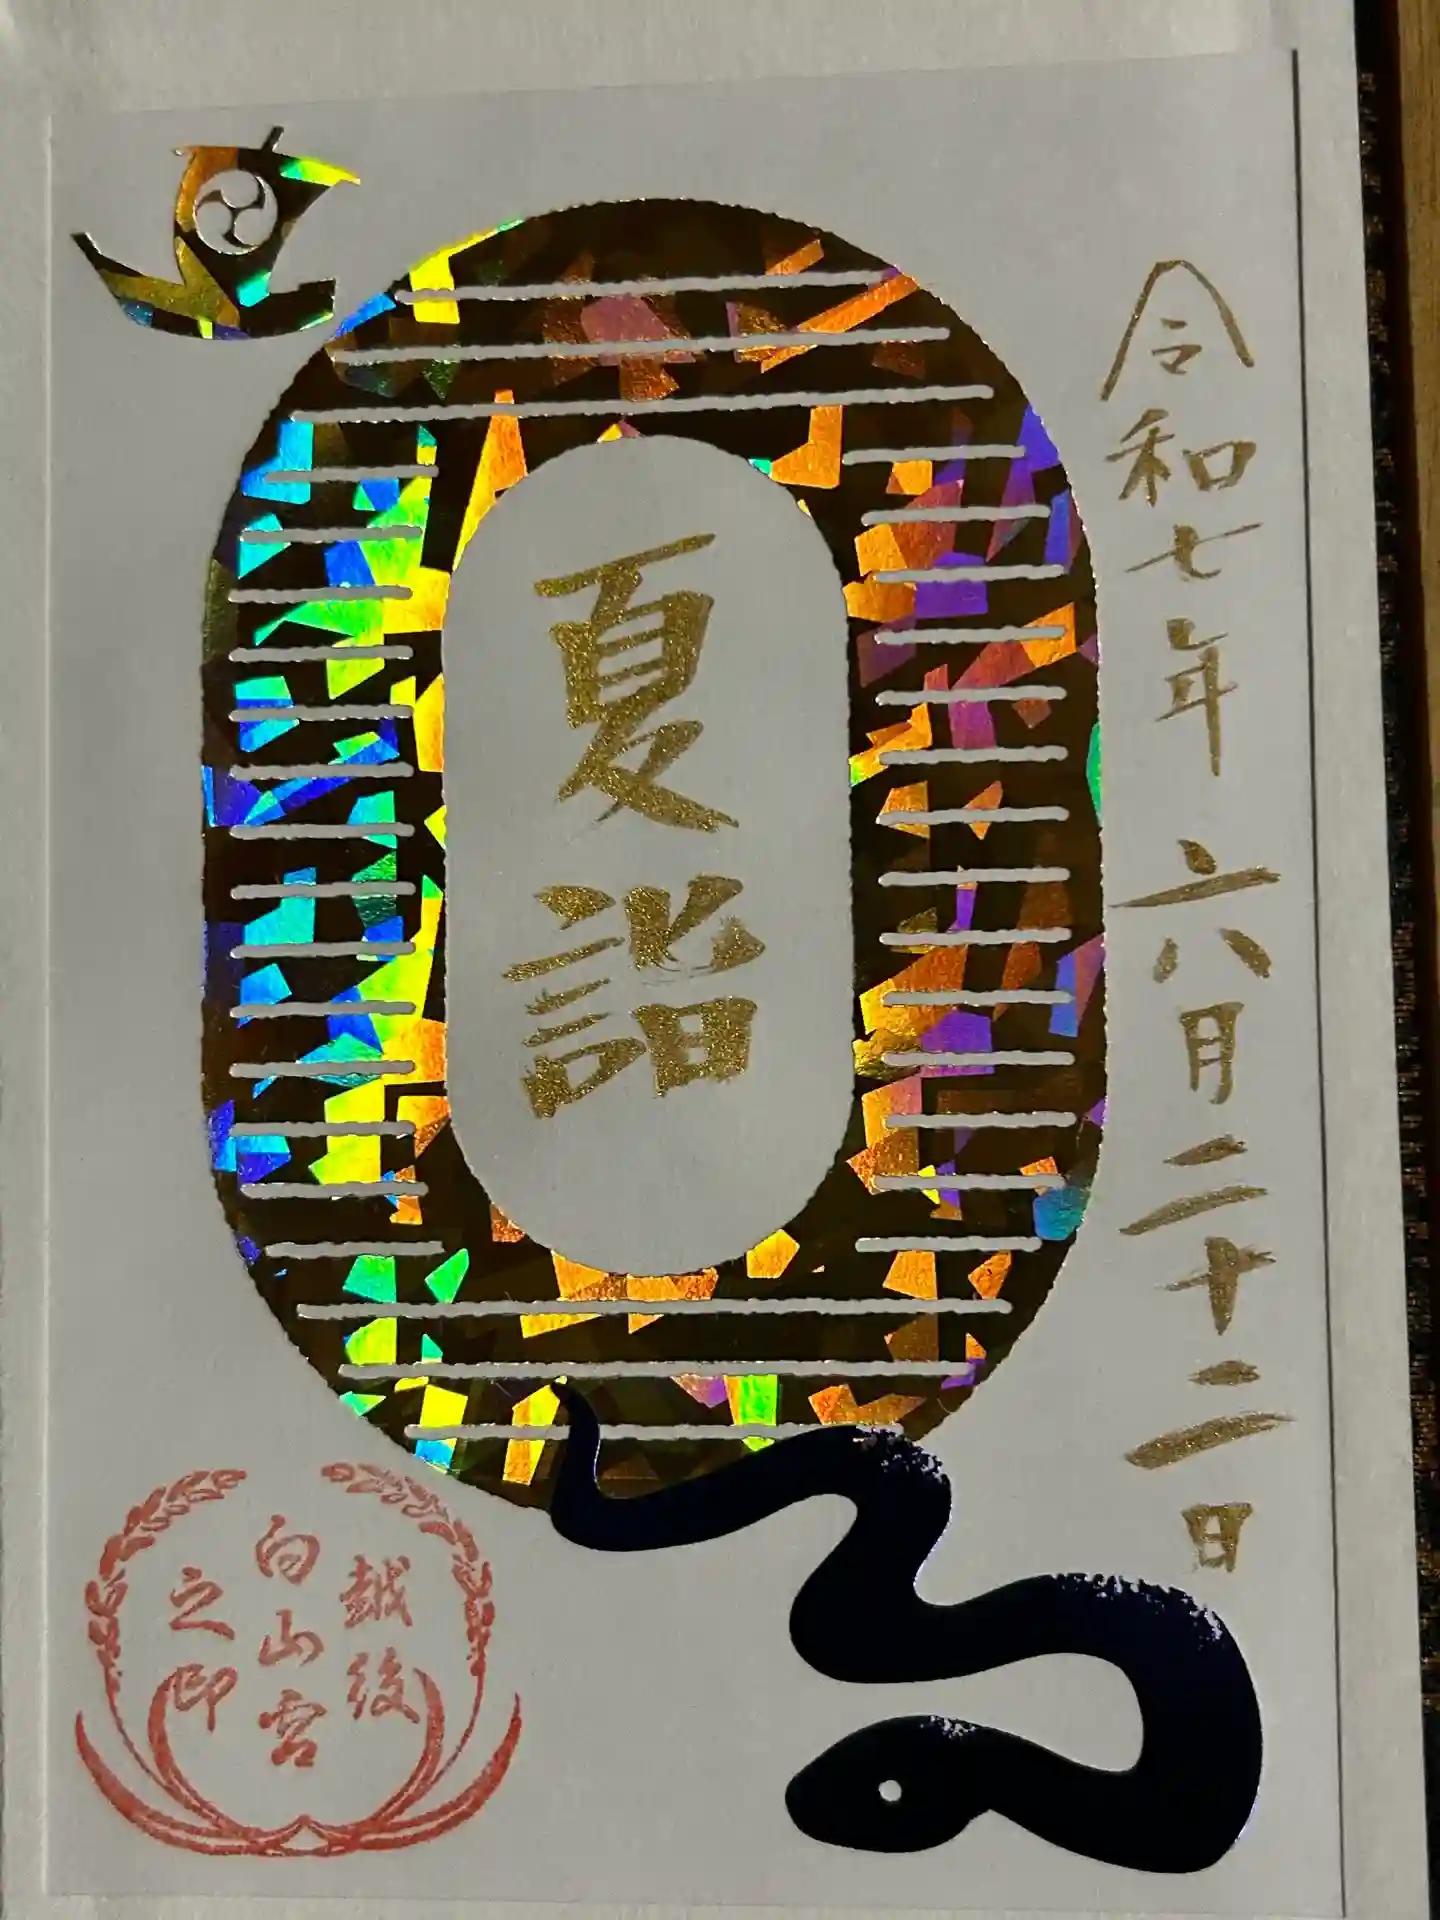 令和七年六月二十二日
夏詣
越後
白山宮
之印